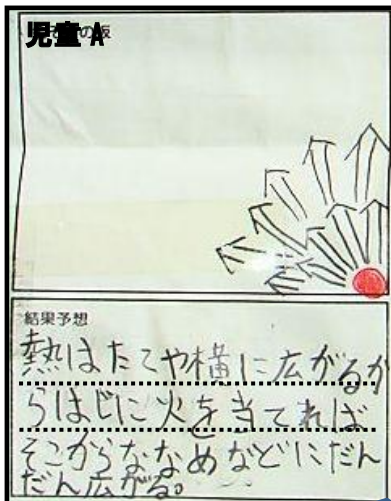 児童A
の板
結果予想
熱はたてや横に広がるか
らはじに火を当てれば
そこからななめなどにだん
だん広がる。